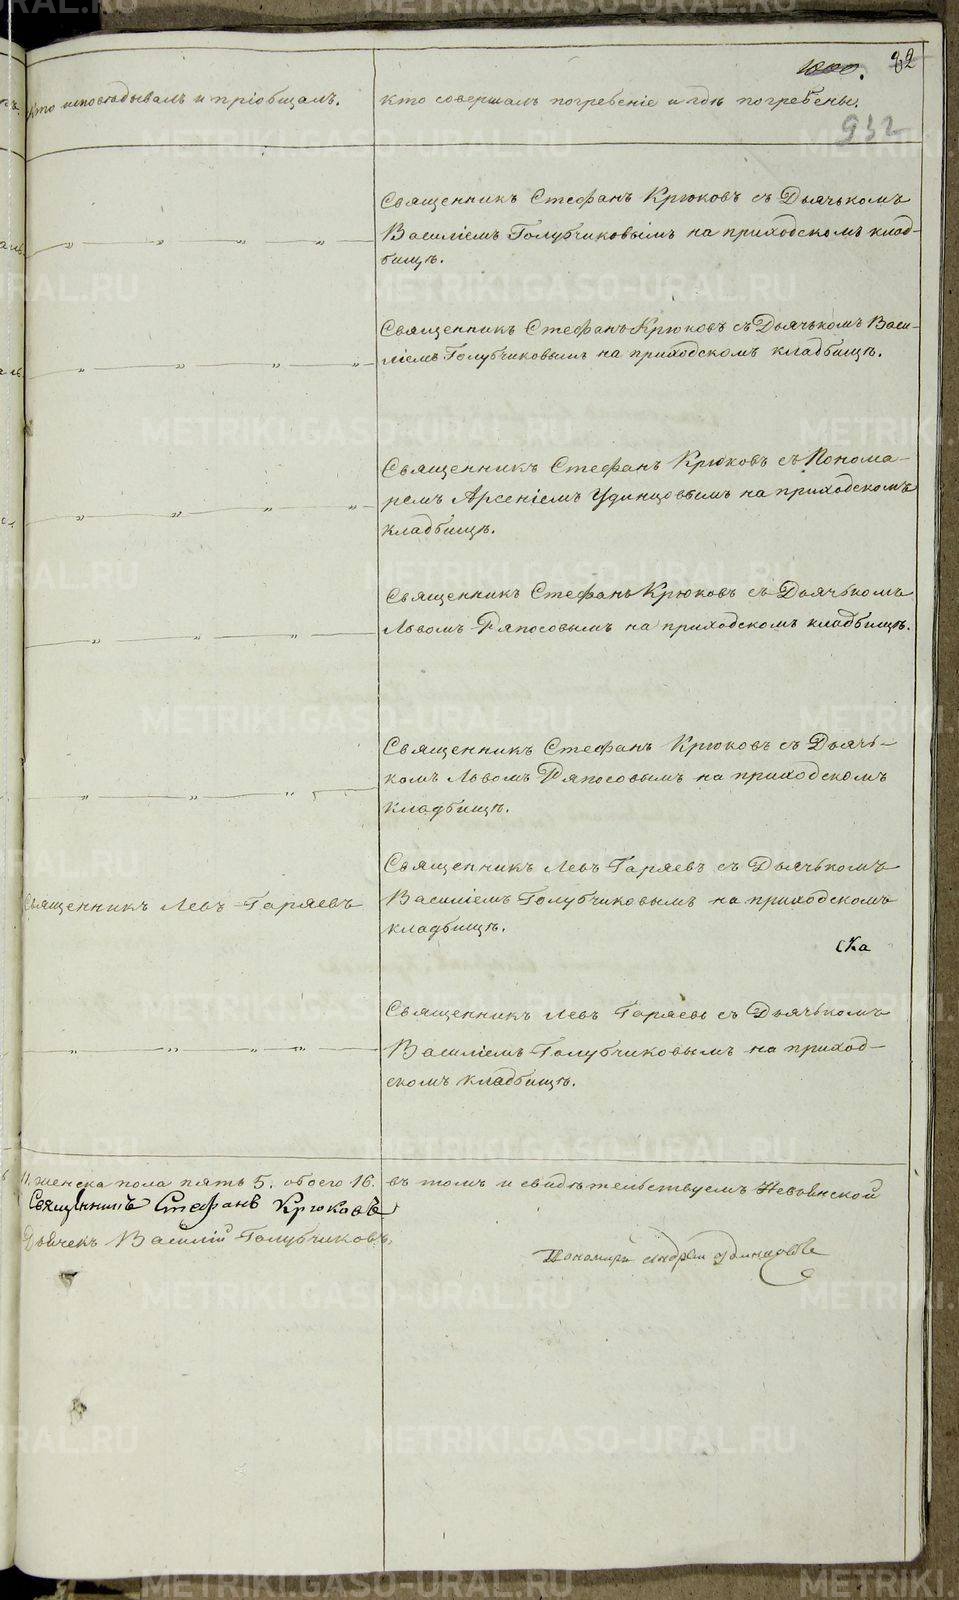 82
932
Кто исповѣдывалъ и пріобщалъ.
Кто совершалъ погребеніе и гдѣ погребены.
Священникъ Стефанъ Крюковъ съ Дьячькомъ
Василіемъ Голубчиковымъ на приходскомъ клад-
бищѣ.
Священникъ Стефанъ Крюковъ съ Дьячькомъ Васи-
ліемъ Голубчиковымъ на приходскомъ кладбищѣ.
Священникъ Стефанъ Крюковъ съ Понома-
ремъ Арсеніемъ Удинцовымъ на приходскомъ
кладбищѣ.
Священникъ Стефанъ Крюковъ съ Дьячькомъ
Львомъ Ряпосовымъ на приходскомъ кладбищѣ.
Священникъ Стефанъ Крюковъ съ Дьячь-
комъ Львомъ Ряпосовымъ на приходскомъ
кладбищѣ.
Священникъ Левъ Гаряевъ
Священникъ Левъ Гаряевъ съ Дьячькомъ
Василіемъ Голубчиковымъ на приходскомъ
кладбищѣ.
ска
Священникъ Левъ Гаряевъ съ Дьячькомъ
Василіемъ Голубчиковымъ на приход-
скомъ кладбищѣ.
11. женска пола пять 5. обоего 16. въ томъ и свидѣтельствуемъ Невьянской
Священникъ Стефанъ Крюковъ
Дьячекъ Василій Голубчиковъ.
Пономарь Удинцовъ
METRIKI.GASO-URAL.RU